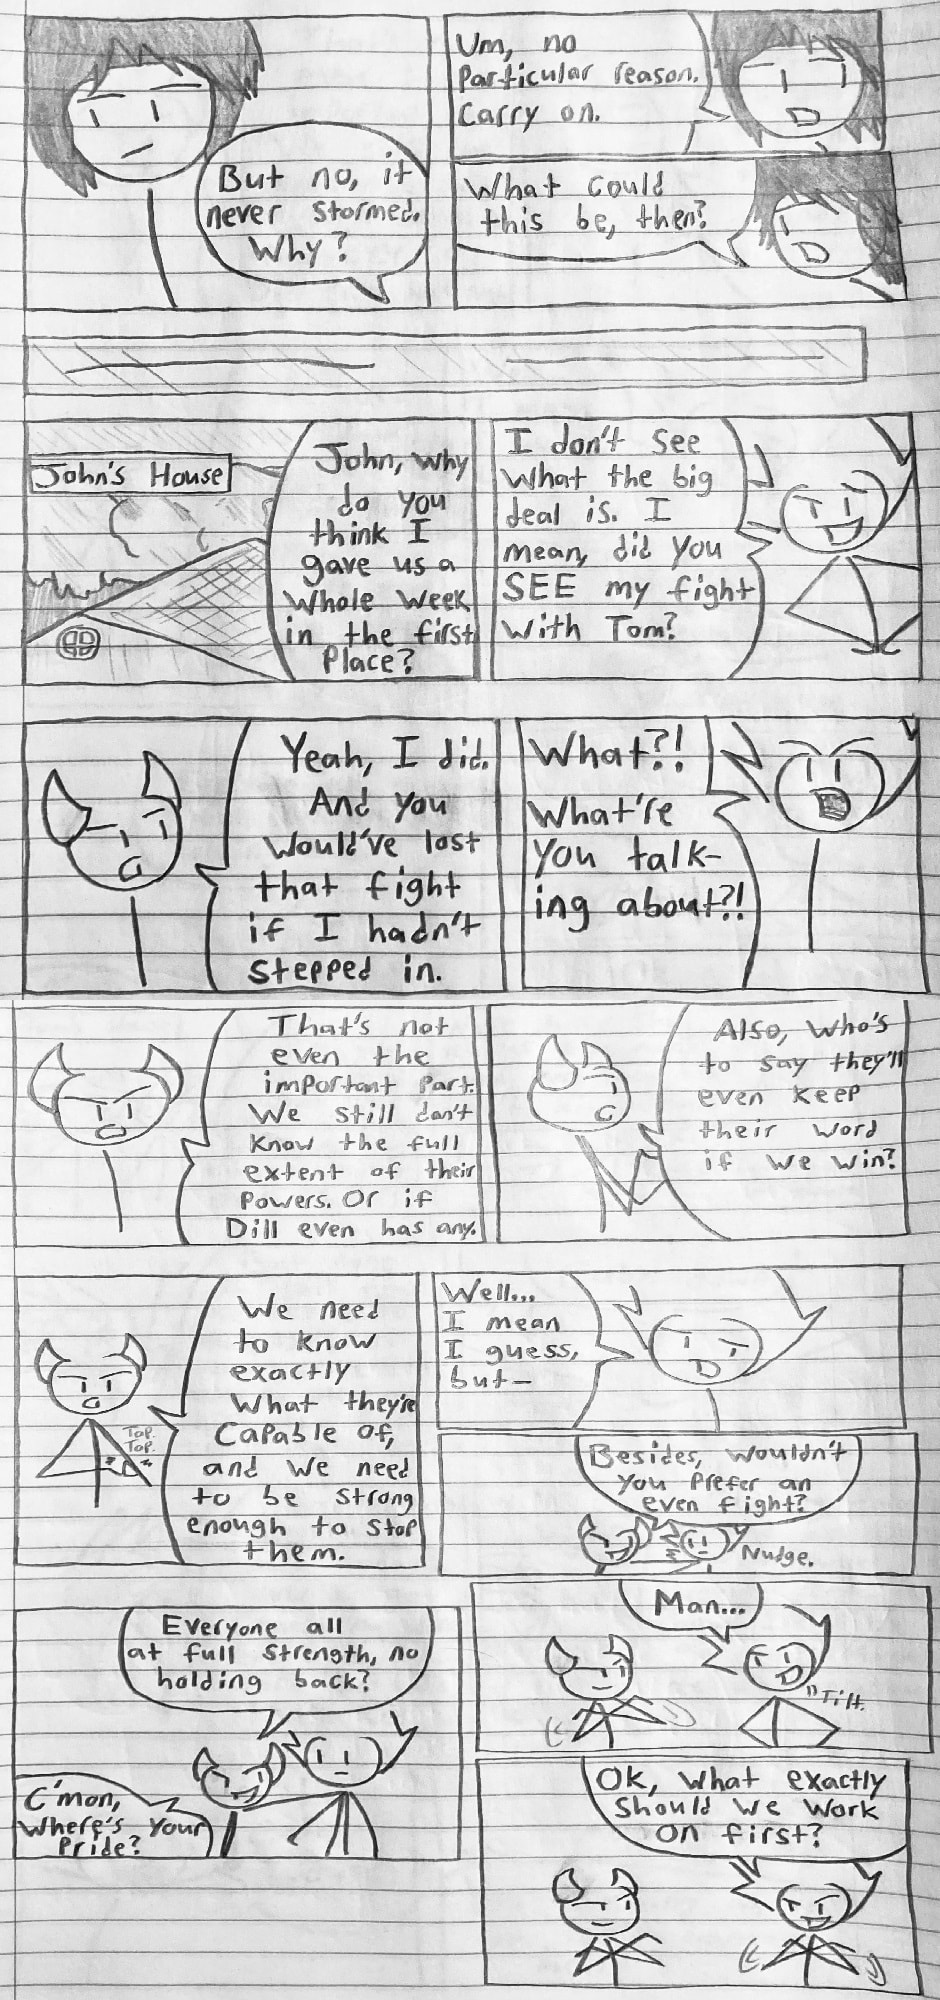 But no, it
never stormed.
Why?
Um, no
particular reason.
Carry on.
What could
this be, then?
John's House
John, why
do you
think I
gave us a
whole week
in the first
place?
I don't see
what the big
deal is. I
mean, did you
SEE my fight
with Tom?
Yeah, I did.
And you
would've lost
that fight
if I hadn't
stepped in.
What?!
What're
you talk-
ing about?!
That's not
even the
important part.
We still don't
know the full
extent of their
powers. Or if
Dill even has any.
Also, who's
to say they'll
even keep
their word
if we win?
We need
to know
exactly
what they're
capable of,
and we need
to be strong
enough to stop
them.
Tap.
Tap.
Well...
I mean
I guess,
but—
Besides, wouldn't
you prefer an
even fight?
Nudge.
Everyone all
at full strength, no
holding back?
C'mon,
where's your
pride?
Man...
Tilt.
Ok, what exactly
should we work
on first?